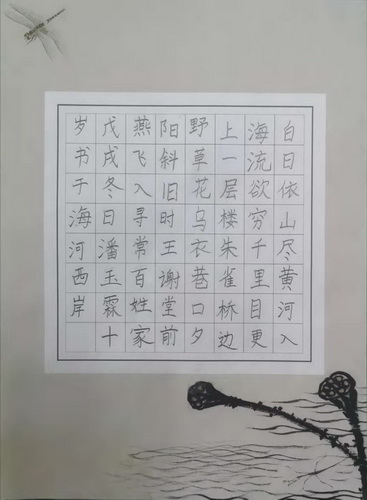 白日依山尽黄河入
海流欲穷千里目更
上一层楼朱雀桥边
野草花乌衣巷口夕
阳斜旧时王谢堂前
燕飞入寻常百姓家
戊戌冬日潘玉霖十
岁书于海河西岸